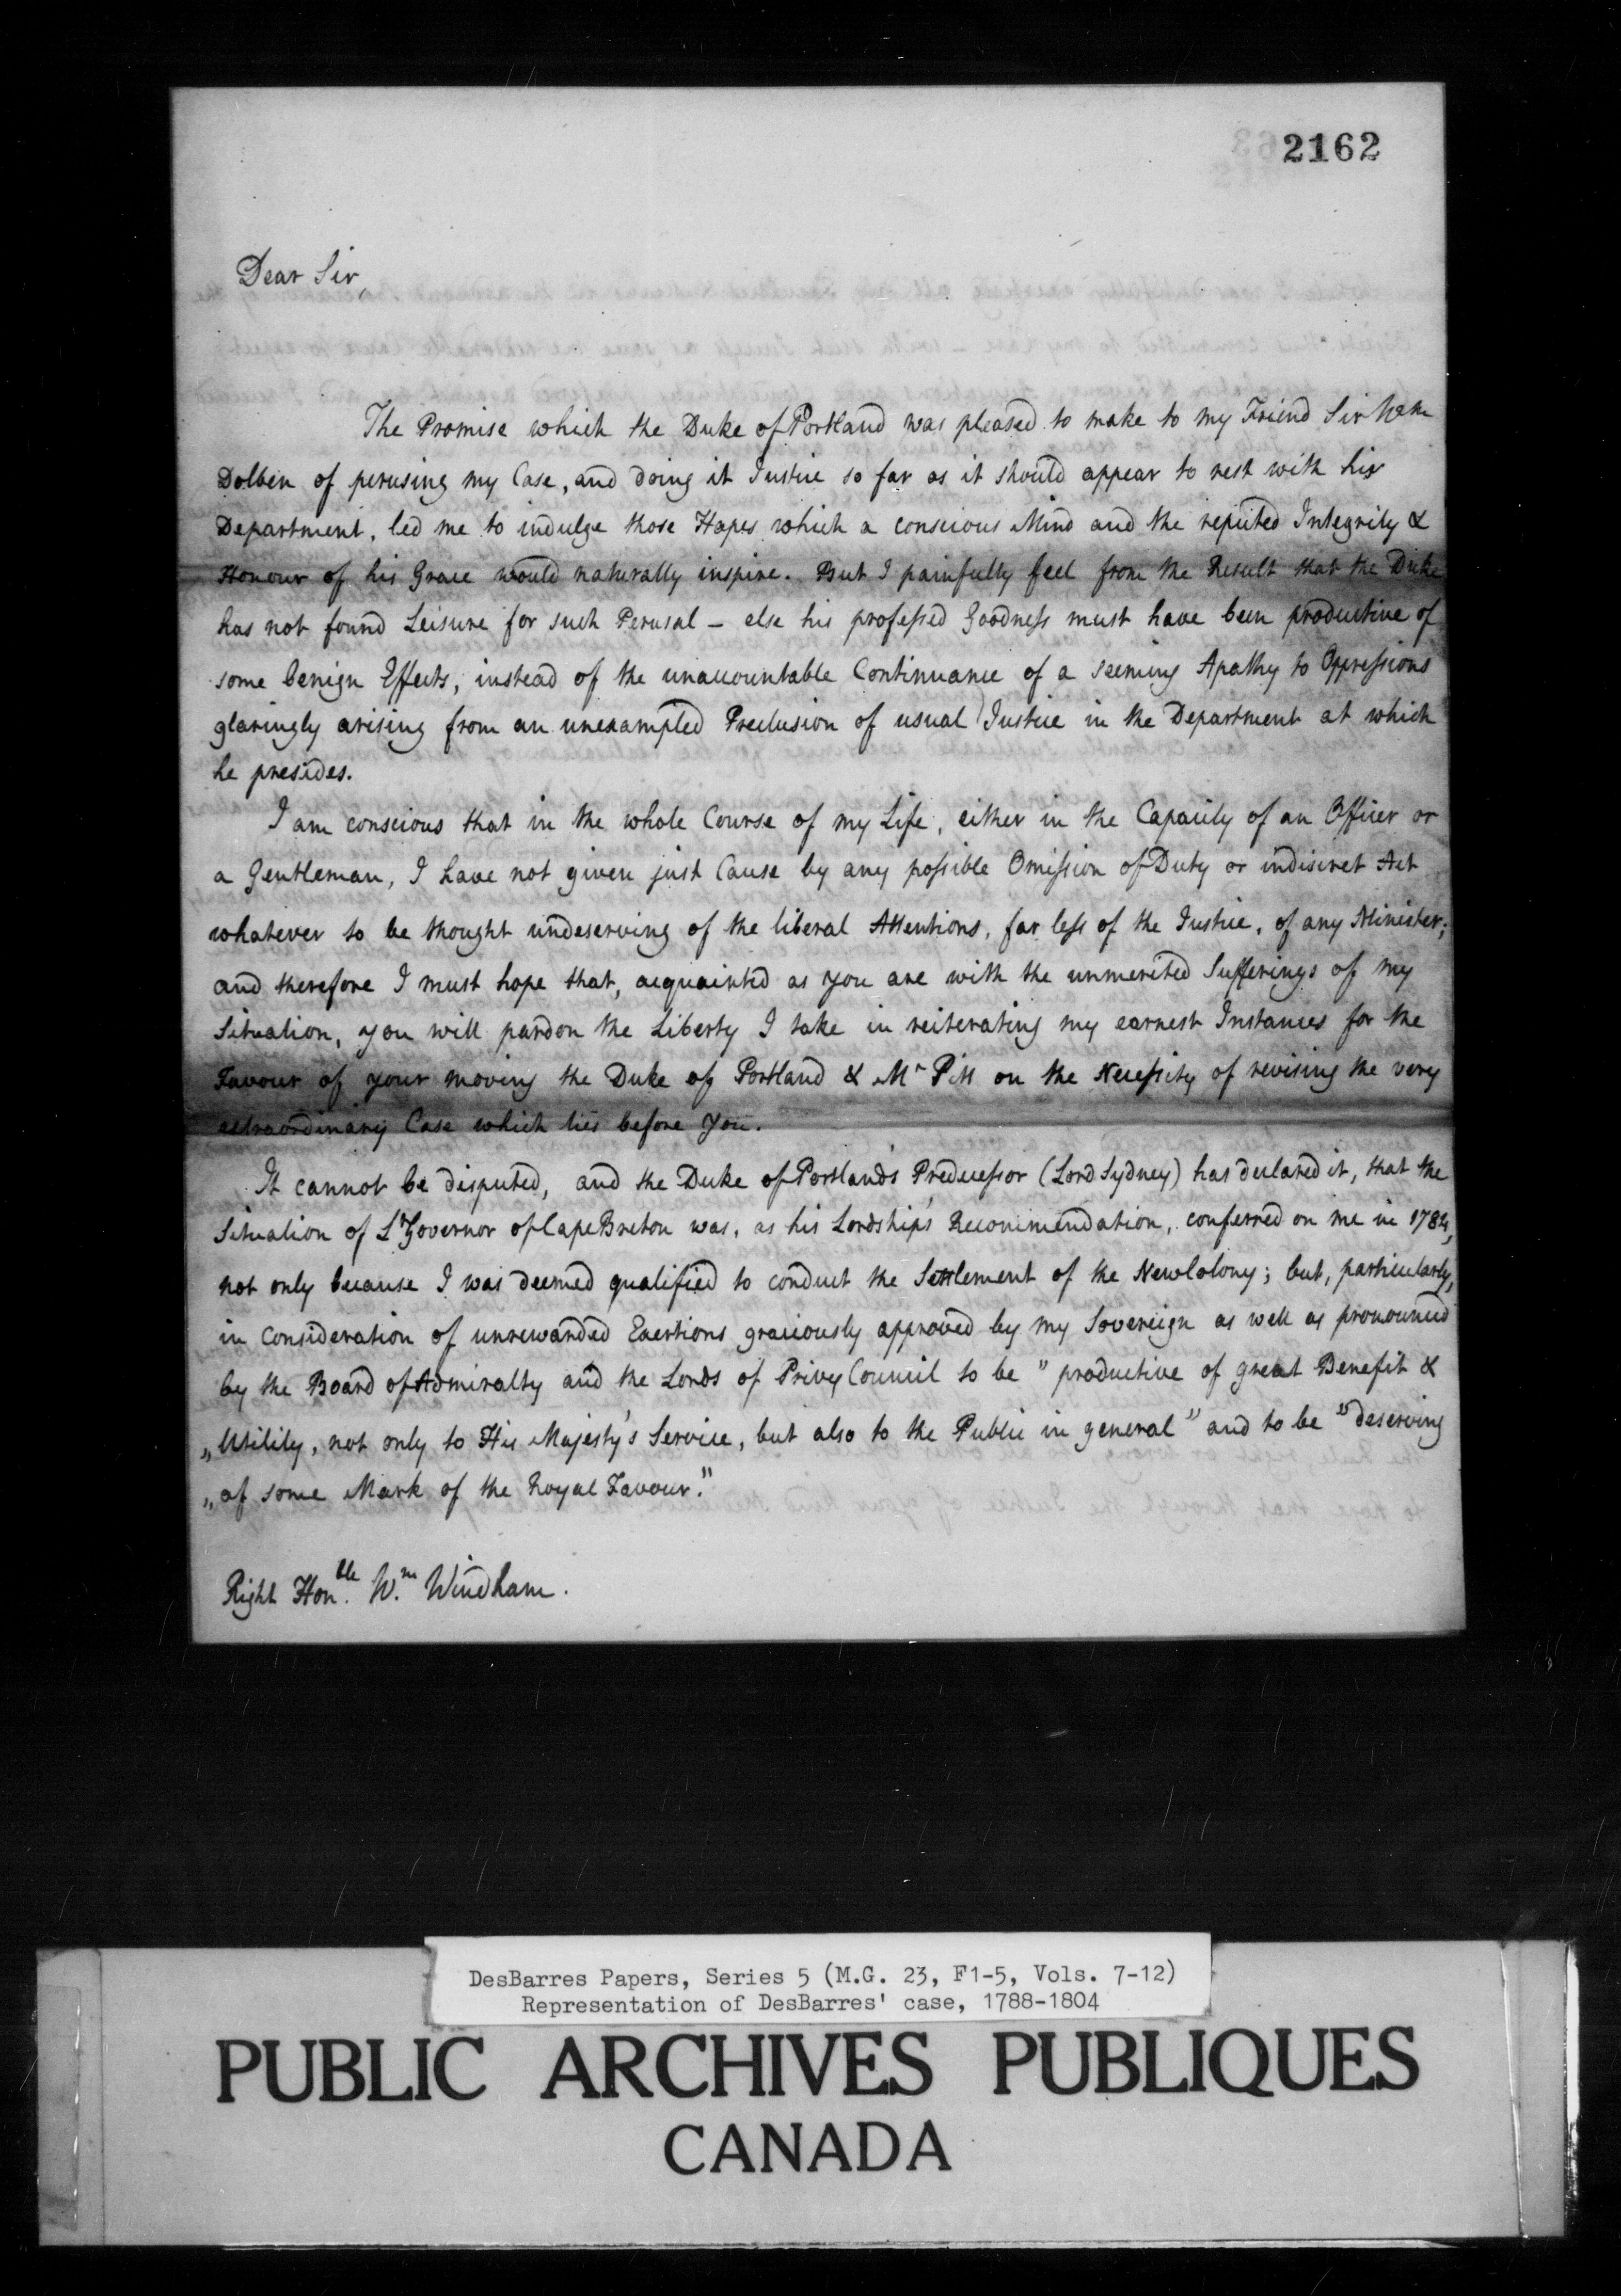 2162
Dear Sir,
The Promise which the Duke of Portland was pleased to make to my Friend Sir Wm
Dolben of perusing my Case, and doing it Justice so far as it should appear to rest with his
Department, led me to indulge those Hopes which a conscious Mind and the reputed Integrity &
Honour of his Grace would naturally inspire. But I painfully feel from the Result that the Duke
has not found Leisure for such Perusal – else his professed Goodness must have been productive of
some benign Effects, instead of the unaccountable Continuance of a seeming Apathy to Oppressions
glaringly arising from an unexampled Preclusion of usual Justice in the Department at which
he presides.
I am conscious that in the whole Course of my Life, either in the Capacity of an Officer or
a Gentleman, I have not given just Cause by any possible Omission of Duty or indiscret Act
whatever to be thought undeserving of the liberal Attentions, far less of the Justice, of any Minister;
and therefore I must hope that, acquainted as you are with the unmerited Sufferings of my
Situation, you will pardon the Liberty I take in reiterating my earnest Instances for the
Favour of your moving the Duke of Portland & Mr Pitt on the Necessity of revising the very
extraordinary Case which lies before You.
It cannot be disputed, and the Duke of Portland's Predecessor (Lord Sydney) has declared it, that the
Situation of Lt Governor of Cape Breton was, as his Lordship's Recommendation, conferred on me in 1784,
not only because I was deemed qualified to conduct the Settlement of the New Colony; but, particularly,
in Consideration of unrewarded Exertions graciously approved by my Sovereign as well as pronounced
by the Board of Admiralty and the Lords of Privy Council to be "productive of great Benefit &
„Utility, not only to His Majesty's Service, but also to the Public in general" and to be "deserving
„of some Mark of the Royal Favour."
Right Hon.ble W.m Windham.
DesBarres Papers, Series 5 (M.G. 23, F1-5, Vols. 7-12)
Representation of DesBarres' case, 1788-1804
PUBLIC ARCHIVES PUBLIQUES
CANADA